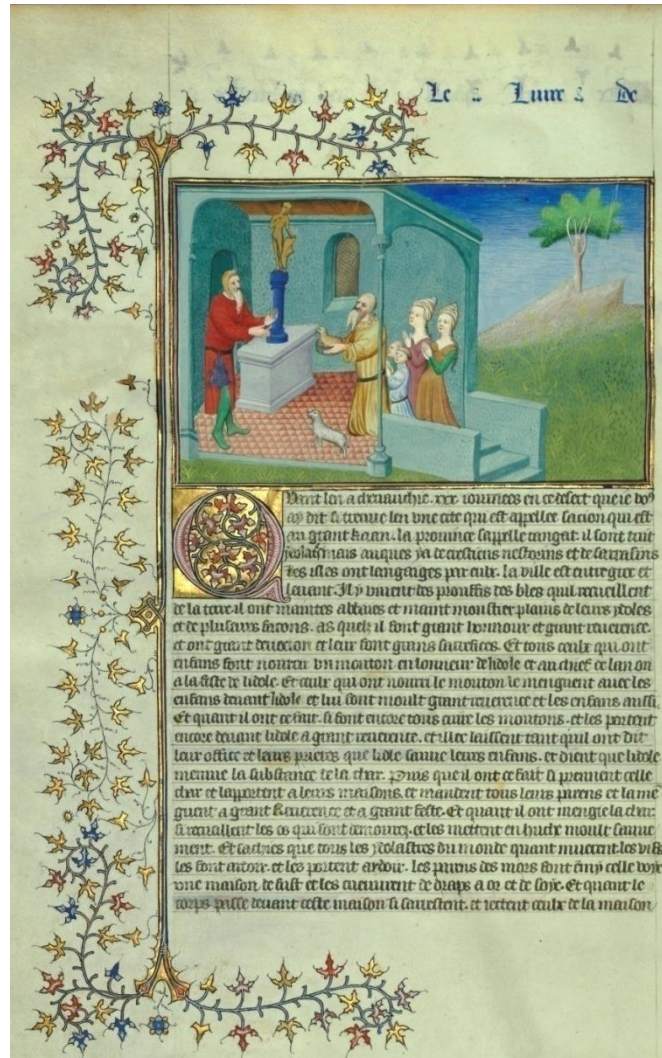 Le Liure De
Quant len a cheuauchie .xxx. iournees en ce desert que ie vous
ay dit si treuue len vne cite qui est appellee sacion qui est
au grant kaan. la prouince sappelle tangat. il sont tuit
ydolastr mais auques ya de crestiens nestorins et de sarrasins
les ont langaiges par eulx. la ville est entre grec et
leuant. Il y viuent des prouffis des bles quil recueillent
de la terre. il ont maintes abbaies et maint moustier plains de leurs ydoles
et de plusieurs facons. as quelz il font grant honnour et grant reuerence.
et ont grant deuocion et leur font grans sacrefices. Et tous ceulx qui ont
enfans font nourrir vn mouton en lonneur de lidole et au chief de lan on
a la feste de lidole. Et ceulx qui ont nourri le mouton le menguent auec les
enfans deuant lidole et lui font moult grant reuerence et les enfans aussi.
Et quant il ont ce fait. si font encore tous cuire les moutons. et les portent
encore deuant lidole a grant reuerence. et illec laissent tant quil ont dit
leur office et leurs prieres que lidole sauue leurs enfans. et dient que lidole
mengue la substance de la char. Puis que il ont ce fait si prennent celle
char et lapportent a leurs maisons. et mandent tous leurs parens et la me
guent a grant Reuerence et a grant feste. Et quant il ont mengie la char
si recueillent les os qui sont et les mettent en huche moult sauue
ment. Et sachies que tous les ydolastres du monde quant muerent. les vifs
les font ardoir. et les portent ardoir. les parens des mors font celle voye
vne maison de fust et les cueuurent de draps a or et de soye. Et quant le
corps passe deuant ceste maison si sarrestent. et iettent ceulx de la maison